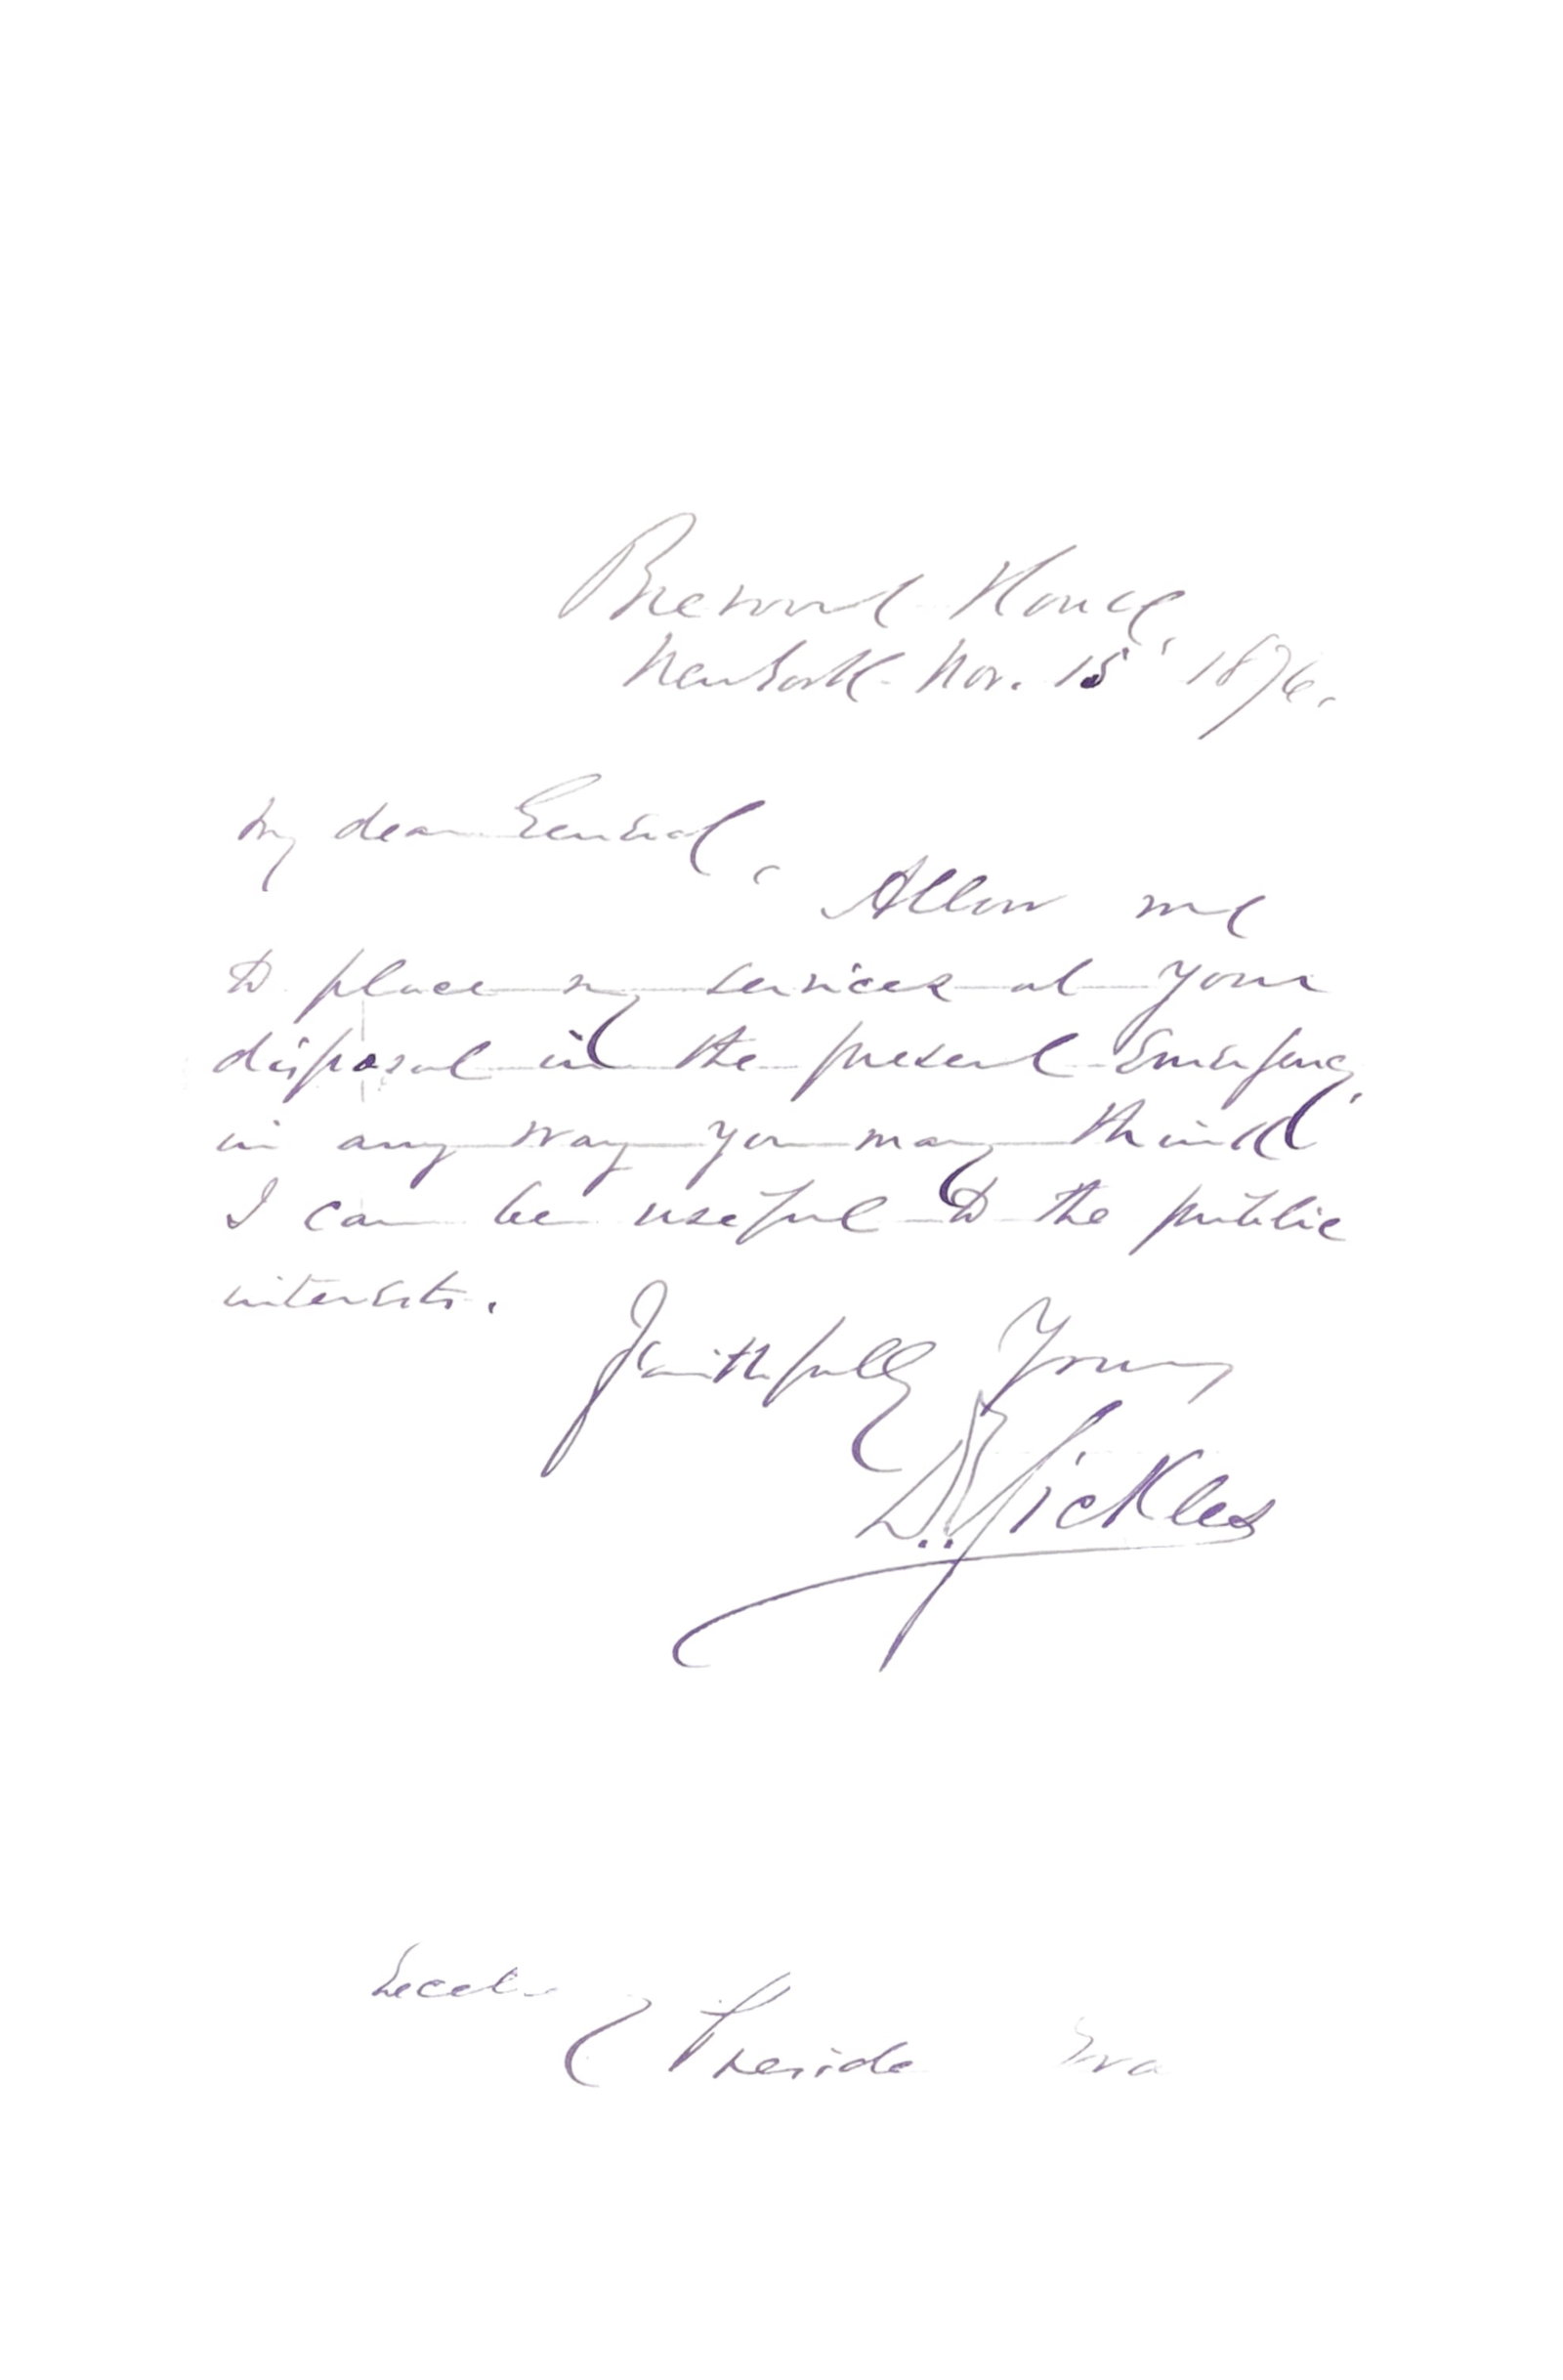 Brevoort House,
New York Nov. 15' 1876.
My dear General,
Allow me
to place my services at your
disposal in the present Emergency
in any way you may think
I can be useful to the public
interests.
Faithfully Yours
D. E. Sickles